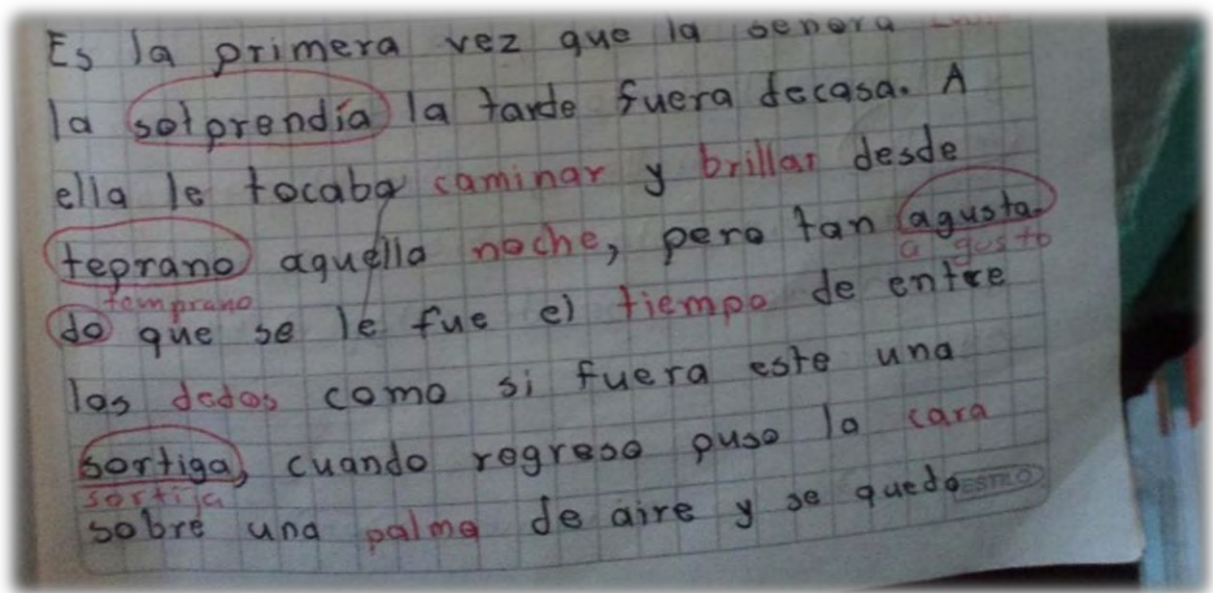 Es la primera vez que la senora
la sotprendía la tarde fuera decasa. A
ella le tocaba caminar y brillar desde
teprano aquella noche, pero tan agusta-
a gusto
temprano
do que se le fue el tiempo de entre
los dedos como si fuera este una
sortiga, cuando regreso puso la cara
sortija
sobre una palma de aire y se quedo
ESTILO